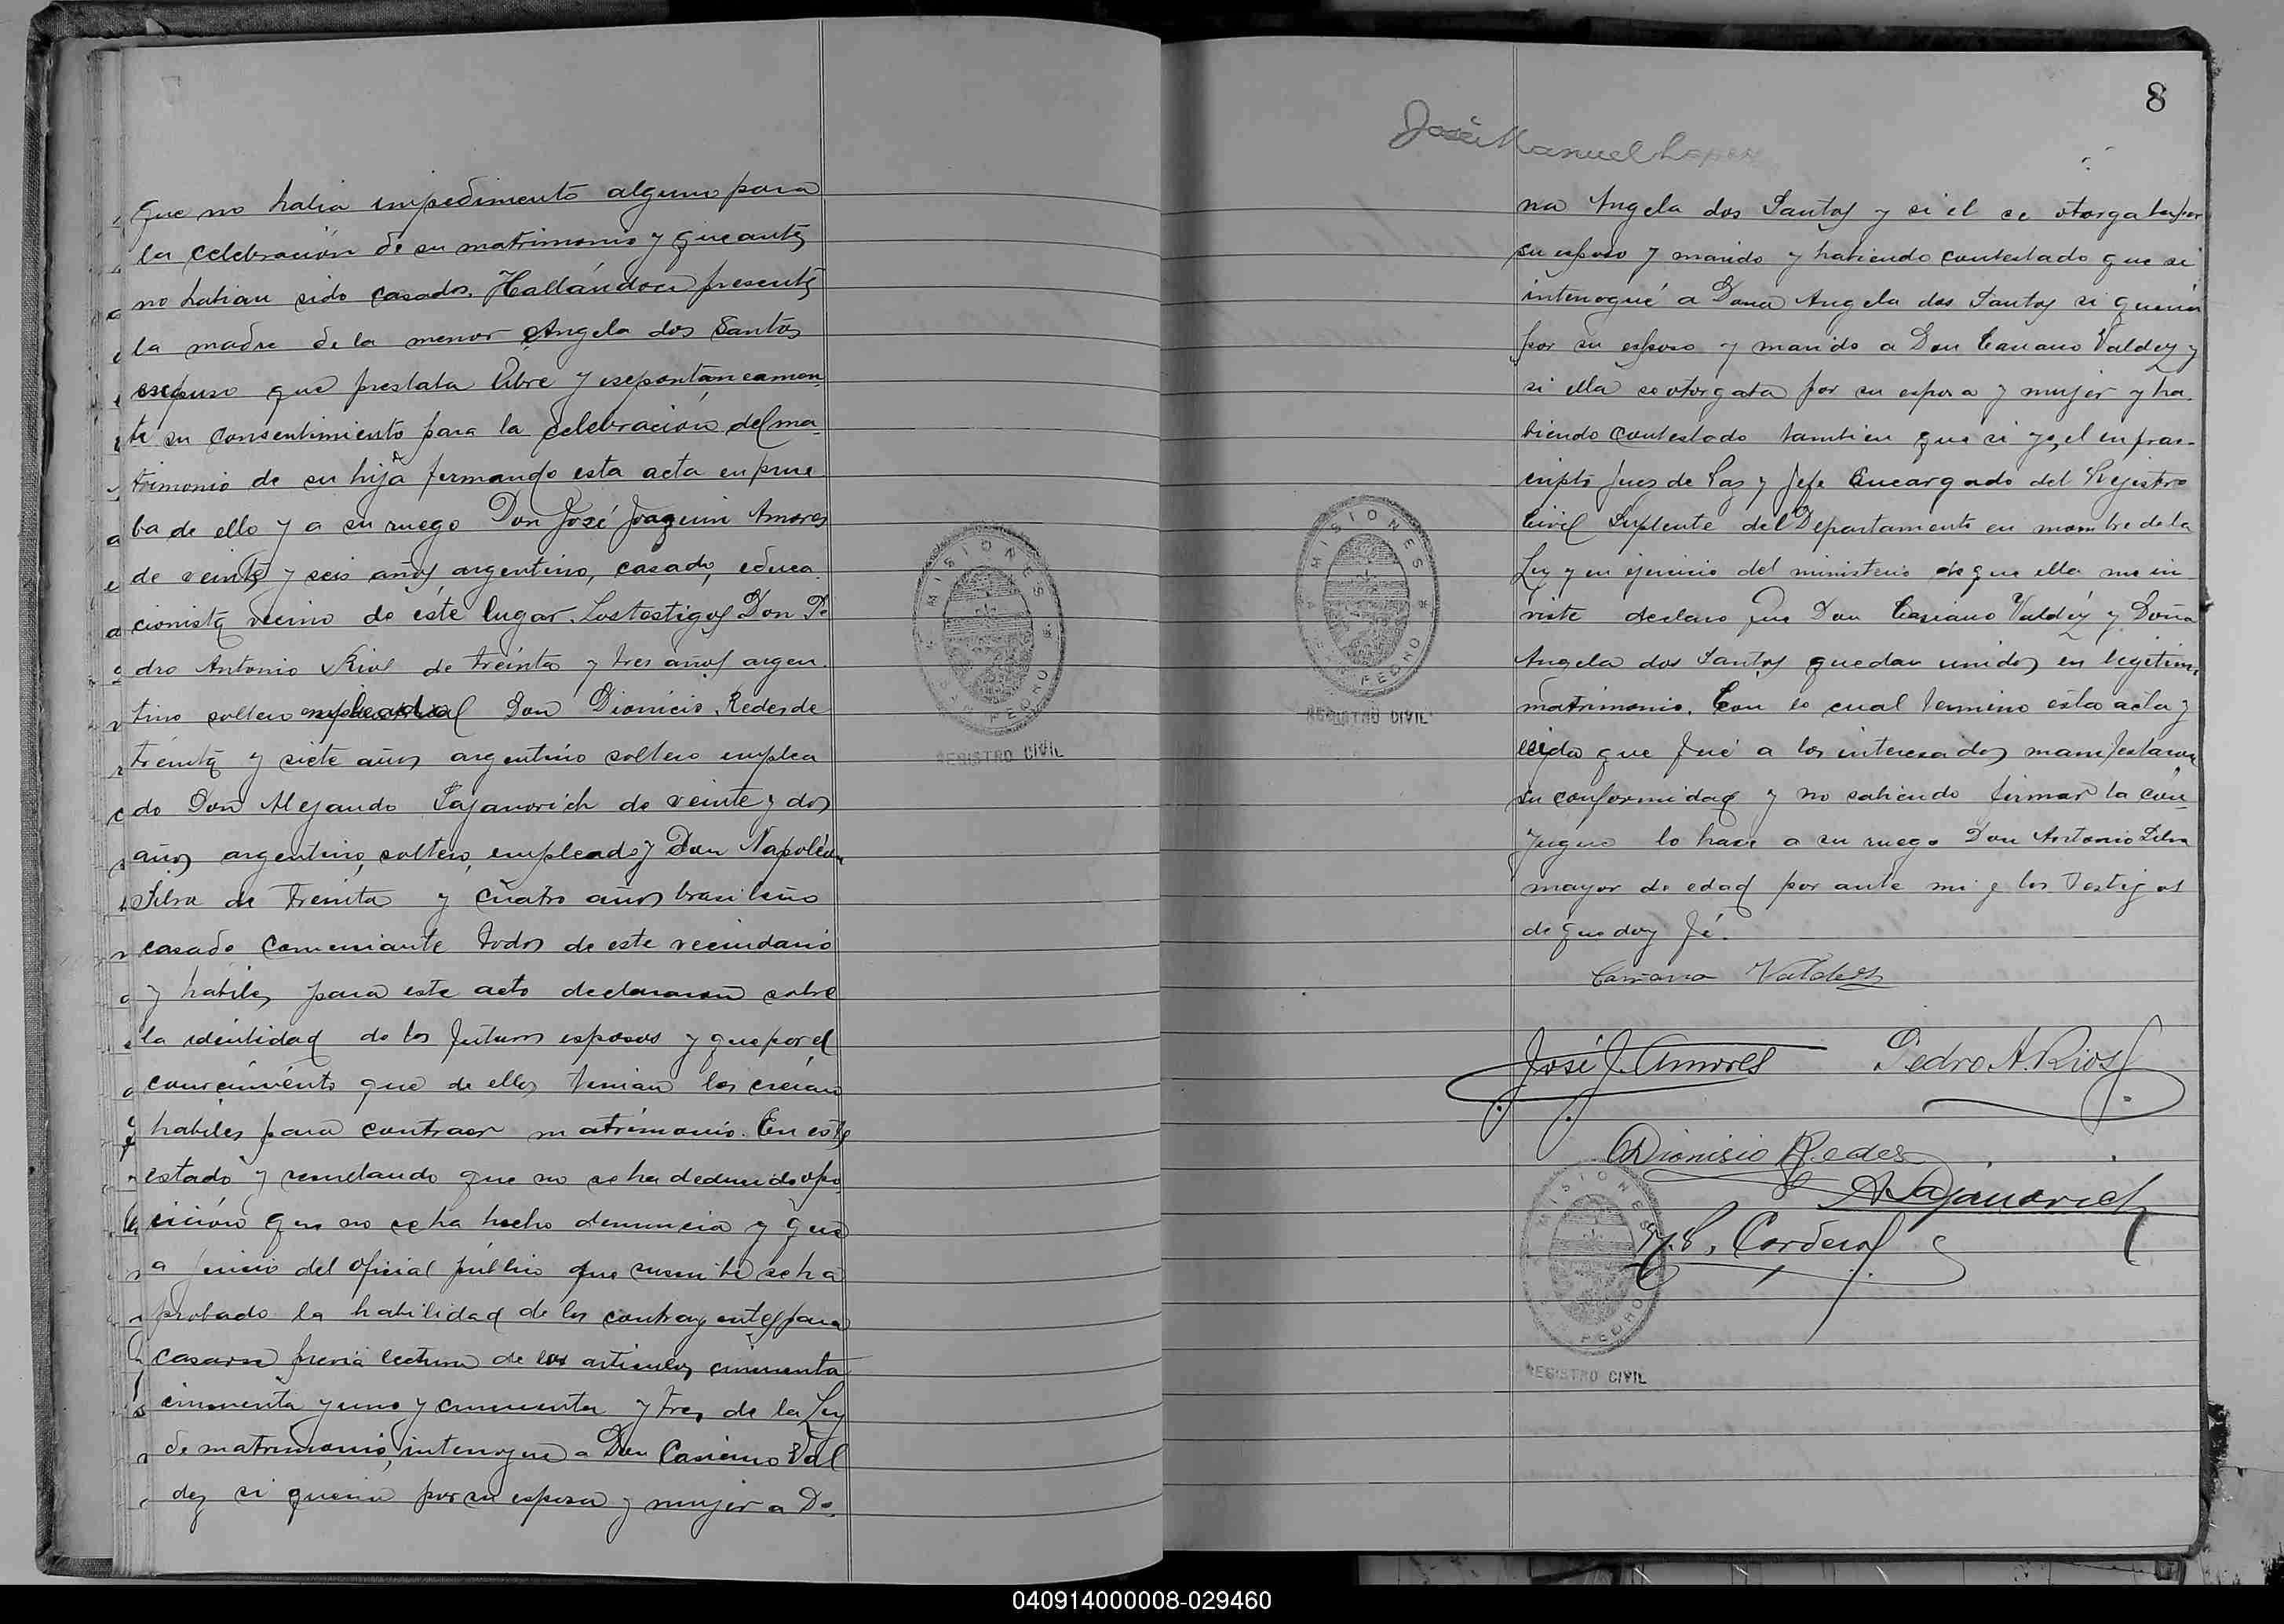 que no habia impedimento alguno para
la celebración de su matrimonio y que antes
no habian sido casados. Hallándose presente
la madre de la menor Angela dos Santos
expuso que prestaba libre y esepontáneamen
te su consentimiento para la celebración del ma-
trimonio de su hija firmando esta acta en prue
ba de ello y a su ruego Don José Joaquin Amores
de veinte y seis años argentino, casado, educa
cionista vecino de éste lugar. Los testigos Don Pe
dro Antonio Rios de treinta y tres años argen-
tino soltero empleado Don Dionicio Redes de
treinta y siete años argentino soltero emplea
do Don Alejando Sajanovich de veinte y dos
años argentino, soltero, empleado y Don Napoleon
Silva de treinta y cuatro años brasileño
casado comerciante todos de este vecindario
y habiles para este acto declararon sobre
la identidad de los futuros esposos y que por el
conocimiento que de ellos tenian los creian
habiles para contraer matrimonio. En este
estado y resultando que no se ha deducido opo
sición que no se ha hecho denuncia y que
a juicio del oficial público que suscribe se ha
probado la habilidad de los contrayentes para
casarse previa lectura de los articulos cincuenta
cincuenta y uno y cincuenta y tres de la Ley
de matrimonio, interrogué a Don Casiano Val
dez si queria por su esposa y mujer a Do-
8
José Manuel Lopez
na Angela dos Santos y si el se otorgaba por
su esposo y marido y habiendo contestado que si
interrogué a Dona Angela dos Santos si queria
por su esposo y marido a Don Casiano Valdez y
si ella se otorgaba por su esposa y mujer y ha-
biendo contestado tambien que si yo, el infras-
cripto Juez de Paz y Jefe Encargado del Rejistro
Civil Suplente del Departamento en nombre de la
Ley y en ejercicio del ministerio de que ella me in-
viste declaro que Don Casiano Valdéz y Doña
Angela dos Santos quedan unidos en legitimo
matrimonio. Con lo cual termino esta acta y
leida que fué a los interesados manifestaron
su conformidad y no sabiendo firmar la con-
yugue lo hace a su ruego Don Antonio Silva
mayor de edad por ante mi y los testigos
de que doy fé.
Casiano Valdez
José J. Amores Pedro A. Rios
Dionisio Redes
A Sajanovich
Cordero
MISIONES
SAN PEDRO
REGISTRO CIVIL
MISIONES
SAN PEDRO
REGISTRO CIVIL
MISIONES
SAN PEDRO
REGISTRO CIVIL
040914000008-029460